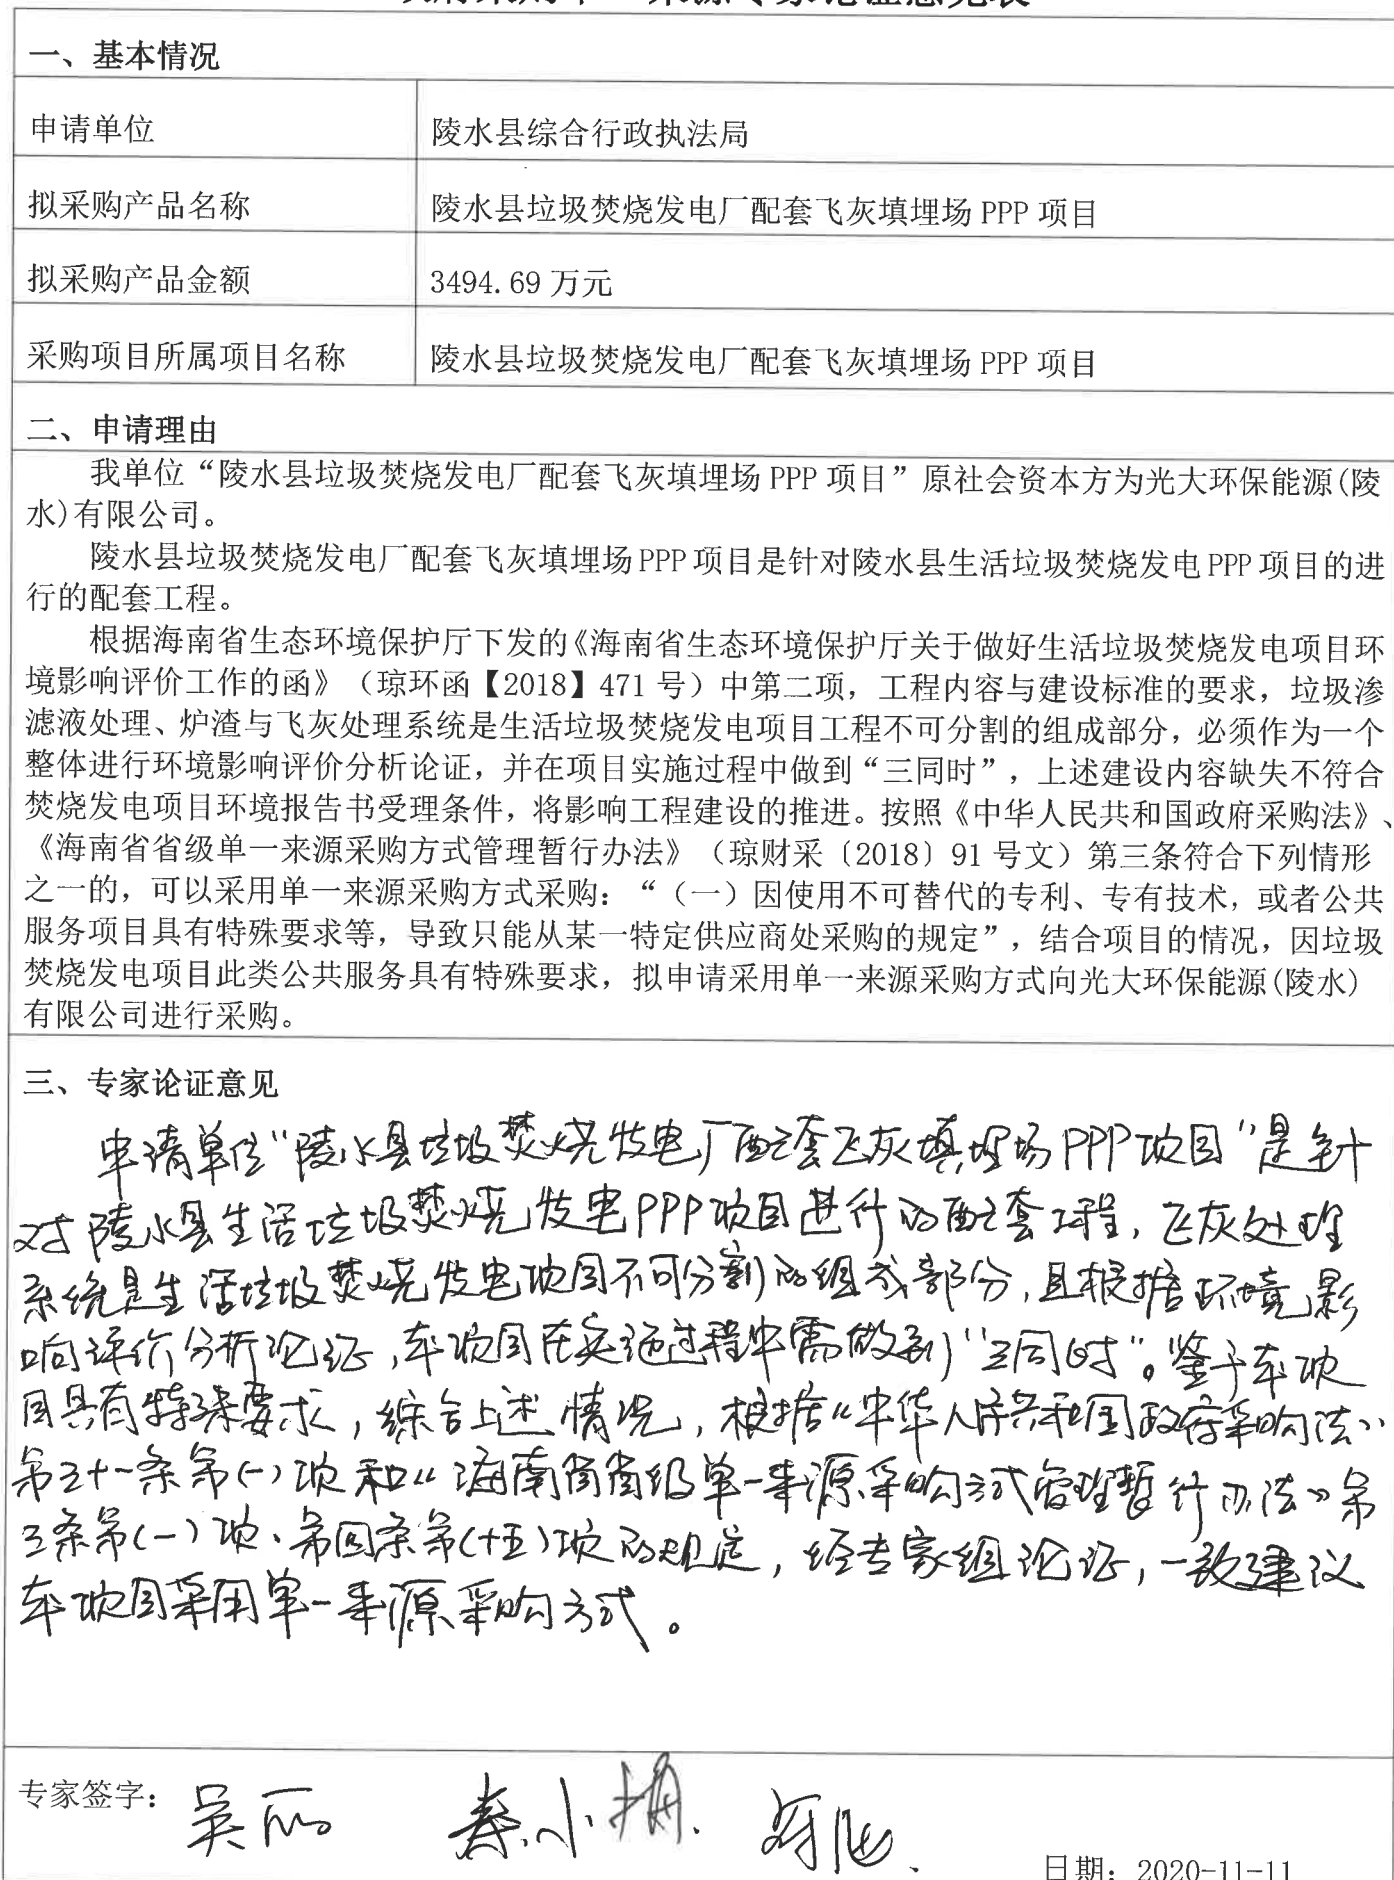 一、基本情况
申请单位 陵水县综合行政执法局
拟采购产品名称 陵水县垃圾焚烧发电厂配套飞灰填埋场 PPP 项目
拟采购产品金额 3494.69 万元
采购项目所属项目名称 陵水县垃圾焚烧发电厂配套飞灰填埋场 PPP 项目
二、申请理由
我单位“陵水县垃圾焚烧发电厂配套飞灰填埋场 PPP 项目”原社会资本方为光大环保能源(陵
水)有限公司。
陵水县垃圾焚烧发电厂配套飞灰填埋场 PPP 项目是针对陵水县生活垃圾焚烧发电 PPP 项目的进
行的配套工程。
根据海南省生态环境保护厅下发的《海南省生态环境保护厅关于做好生活垃圾焚烧发电项目环
境影响评价工作的函》（琼环函【2018】471 号）中第二项，工程内容与建设标准的要求，垃圾渗
滤液处理、炉渣与飞灰处理系统是生活垃圾焚烧发电项目工程不可分割的组成部分，必须作为一个
整体进行环境影响评价分析论证，并在项目实施过程中做到“三同时”，上述建设内容缺失不符合
焚烧发电项目环境报告书受理条件，将影响工程建设的推进。按照《中华人民共和国政府采购法》、
《海南省省级单一来源采购方式管理暂行办法》（琼财采〔2018〕91 号文）第三条符合下列情形
之一的，可以采用单一来源采购方式采购：“（一）因使用不可替代的专利、专有技术，或者公共
服务项目具有特殊要求等，导致只能从某一特定供应商处采购的规定”，结合项目的情况，因垃圾
焚烧发电项目此类公共服务具有特殊要求，拟申请采用单一来源采购方式向光大环保能源(陵水)
有限公司进行采购。
三、专家论证意见
申请单位“陵水县垃圾焚烧发电厂配套飞灰填埋场PPP项目”是针
对陵水县生活垃圾焚烧发电PPP项目进行的配套工程，飞灰处理
系统是生活垃圾焚烧发电项目不可分割的组成部分，且根据环境影
响评价分析论证，本项目在实施过程中需做到“三同时”。鉴于本项
目具有特殊要求，综合上述情况，根据《中华人民共和国政府采购法》
第三十一条第(一)项和《海南省省级单一来源采购方式管理暂行办法》第
三条第(一)项、第四条第(十五)项的规定，经专家组论证，一致建议
本项目采用单一来源采购方式。
专家签字： 吴丽 秦小
日期：2020-11-11